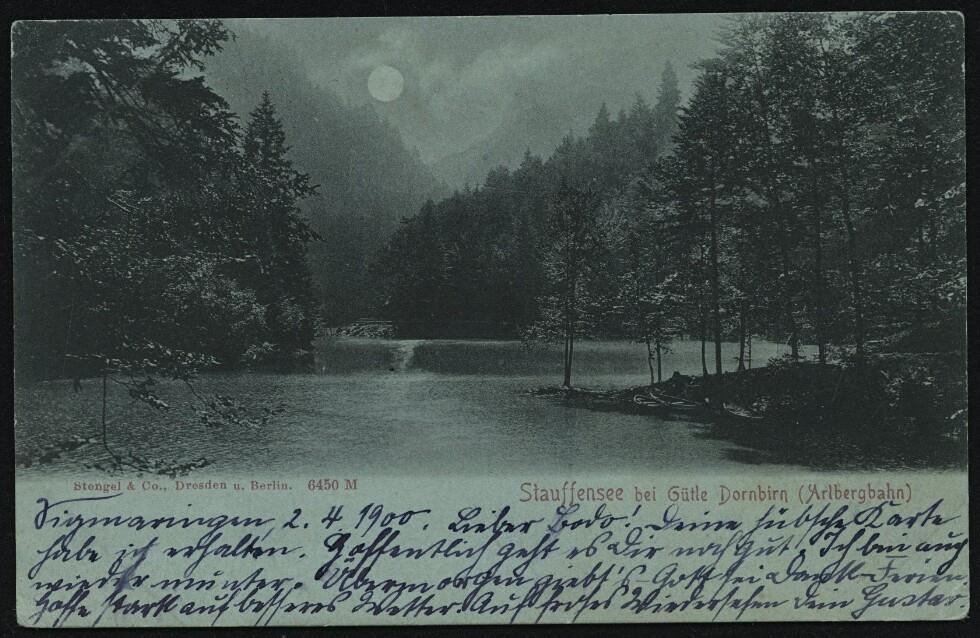 Stengel & Co., Dresden u. Berlin. 6450 M
Stauffensee bei Gütle Dornbirn (Arlbergbahn)
Sigmaringen, 2. 4. 1900. Lieber Bodo! Deine hübsche Karte
habe ich erhalten. Hoffentlich geht es Dir noch gut! Ich bin auch
wieder munter. Übermorgen giebt's Gott sei Dank Ferien,
hoffe stark auf besseres Wetter. Auf frohes Wiedersehen Dein Gustav.